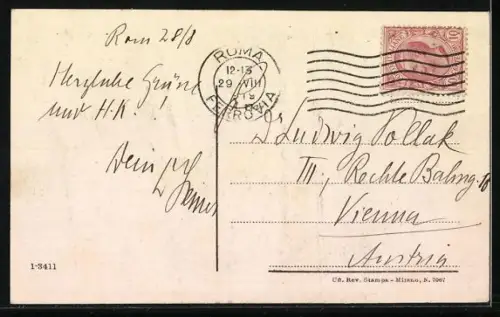 Rom 28/8
Herzliche Grüsse
und H.K.!
Dein
ROMA
12-13
29 VIII
FERROVIA
10
Dr Ludwig Pollak
III, Rechte Bahng. 10
Vienna
Austria
1-3411
Rev. Stampa - Milano, N.